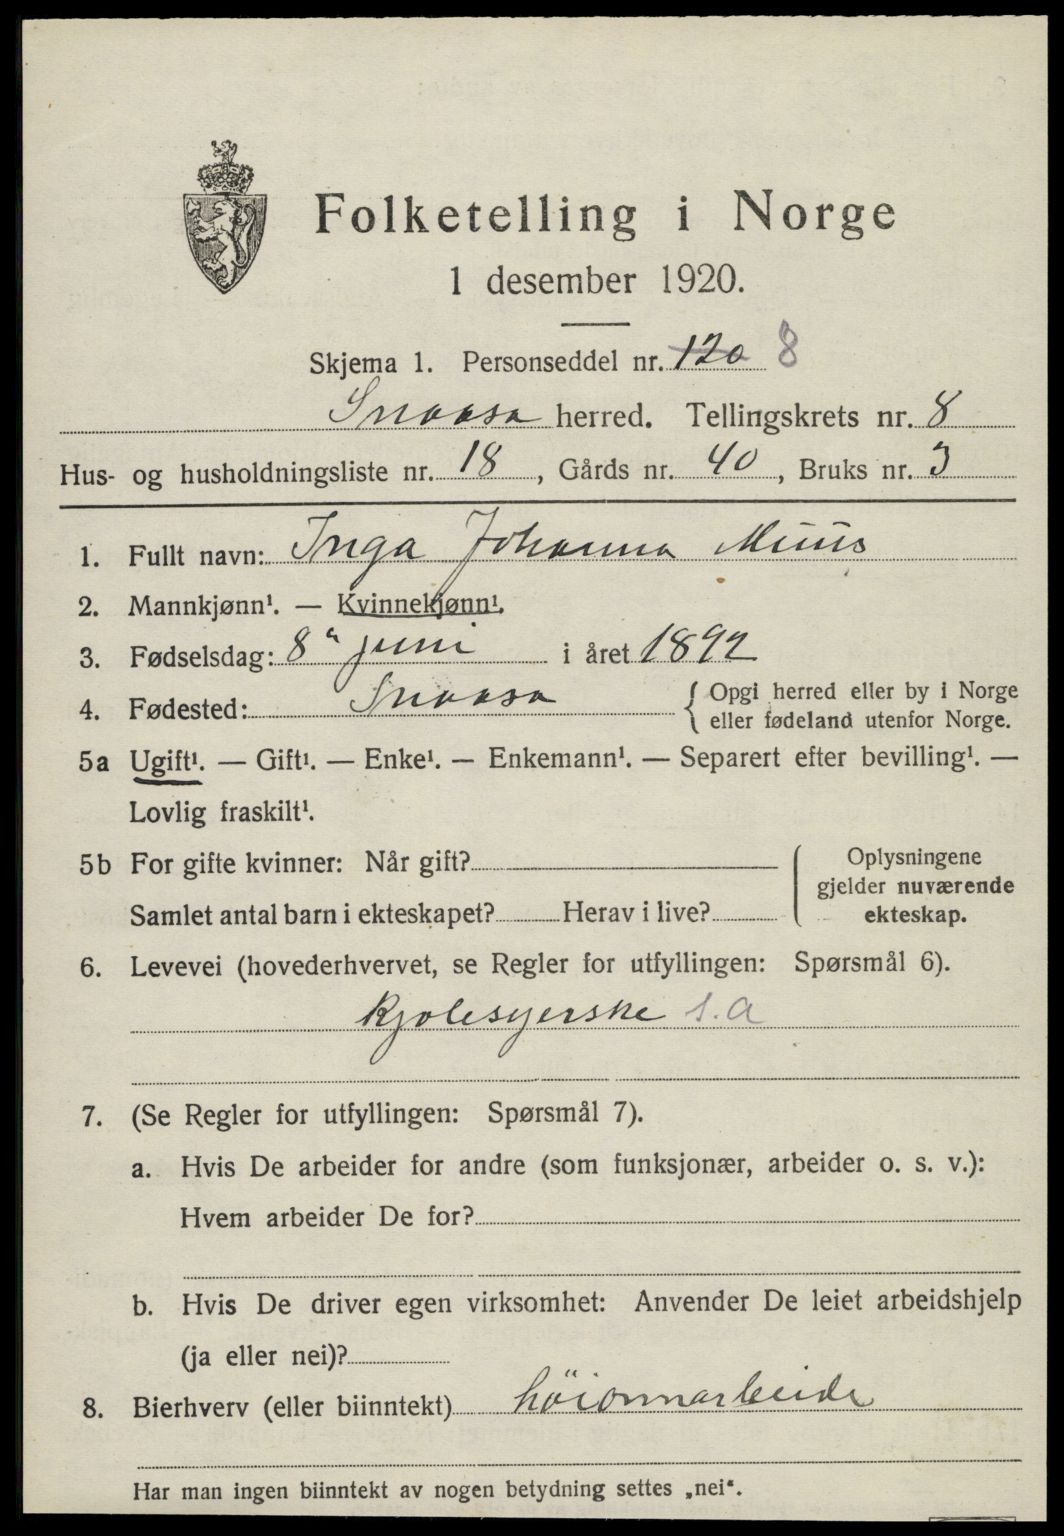 Folketelling i Norge
1 desember 1920.
Skjema 1. Personseddel nr. 120 8
Snaasa herred. Tellingskrets nr. 8
Hus- og husholdningsliste nr. 18, Gårds nr. 40, Bruks nr. 3
1. Fullt navn: Inga Johanna Muus
2. Mannkjønn¹. — Kvinnekjønn¹.
3. Fødselsdag: 8" juni i året 1892
4. Fødested: Snaasa { Opgi herred eller by i Norge
eller fødeland utenfor Norge.
5a Ugift¹. — Gift¹. — Enke¹. — Enkemann¹. — Separert efter bevilling¹. —
Lovlig fraskilt¹.
5b For gifte kvinner: Når gift? Oplysningene
gjelder nuværende
Samlet antal barn i ekteskapet? Herav i live? ekteskap.
6. Levevei (hovederhvervet, se Regler for utfyllingen: Spørsmål 6).
Kjolesyerske s.a
7. (Se Regler for utfyllingen: Spørsmål 7).
a. Hvis De arbeider for andre (som funksjonær, arbeider o. s. v.):
Hvem arbeider De for?
b. Hvis De driver egen virksomhet: Anvender De leiet arbeidshjelp
(ja eller nei)?
8. Bierhverv (eller biinntekt) höionnarbeide
Har man ingen biinntekt av nogen betydning settes „nei".